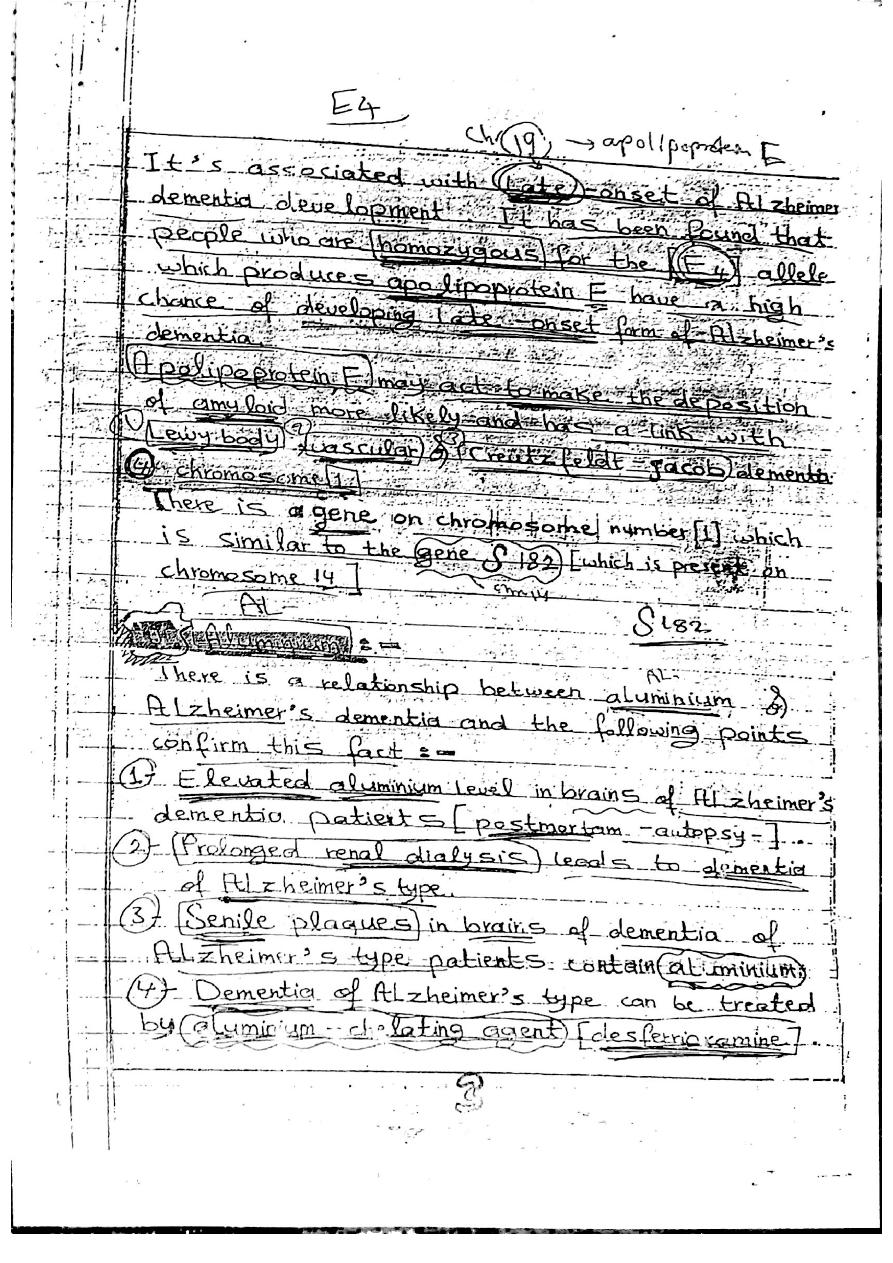 E4
Ch 19 → apolipoprotein E
It's associated with (Late)-onset of Alzheimer
dementia development. It has been found that
people who are [homozygous] for the [E4] allele
which produces apolipoprotein E have a high
chance of developing late-onset form of Alzheimer's
dementia.
(Apolipoprotein E) may act to make the deposition
of amyloid more likely and has a link with
1) Lewy body, 2) vascular & 3) Creutzfeldt-Jacob dementia
4 chromosome [1]
There is a gene on chromosome number [1] which
is similar to the (gene S182) [which is present on
chromosome 14]
AL
S182
Aluminium :-
AL.
There is a relationship between aluminium &
Alzheimer's dementia and the following points
confirm this fact :-
1- Elevated aluminium level in brains of Alzheimer's
dementia patients [postmortam -autopsy-]..
2- (Prolonged renal dialysis) leads to dementia
of Alzheimer's type.
3- [Senile plaques] in brains of dementia of
Alzheimer's type patients contain (aluminium)
4- Dementia of Alzheimer's type can be treated
by (aluminium-chelating agent) [desferrioxamine].
3